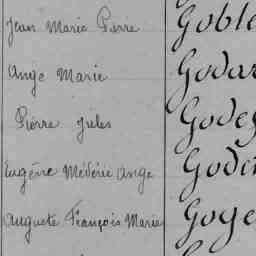 Jean Marie Pierre Goble
Ange Marie Godar
Pierre Jules Godes
Eugène Médéric Ange Godi
Auguste François Marie Goge